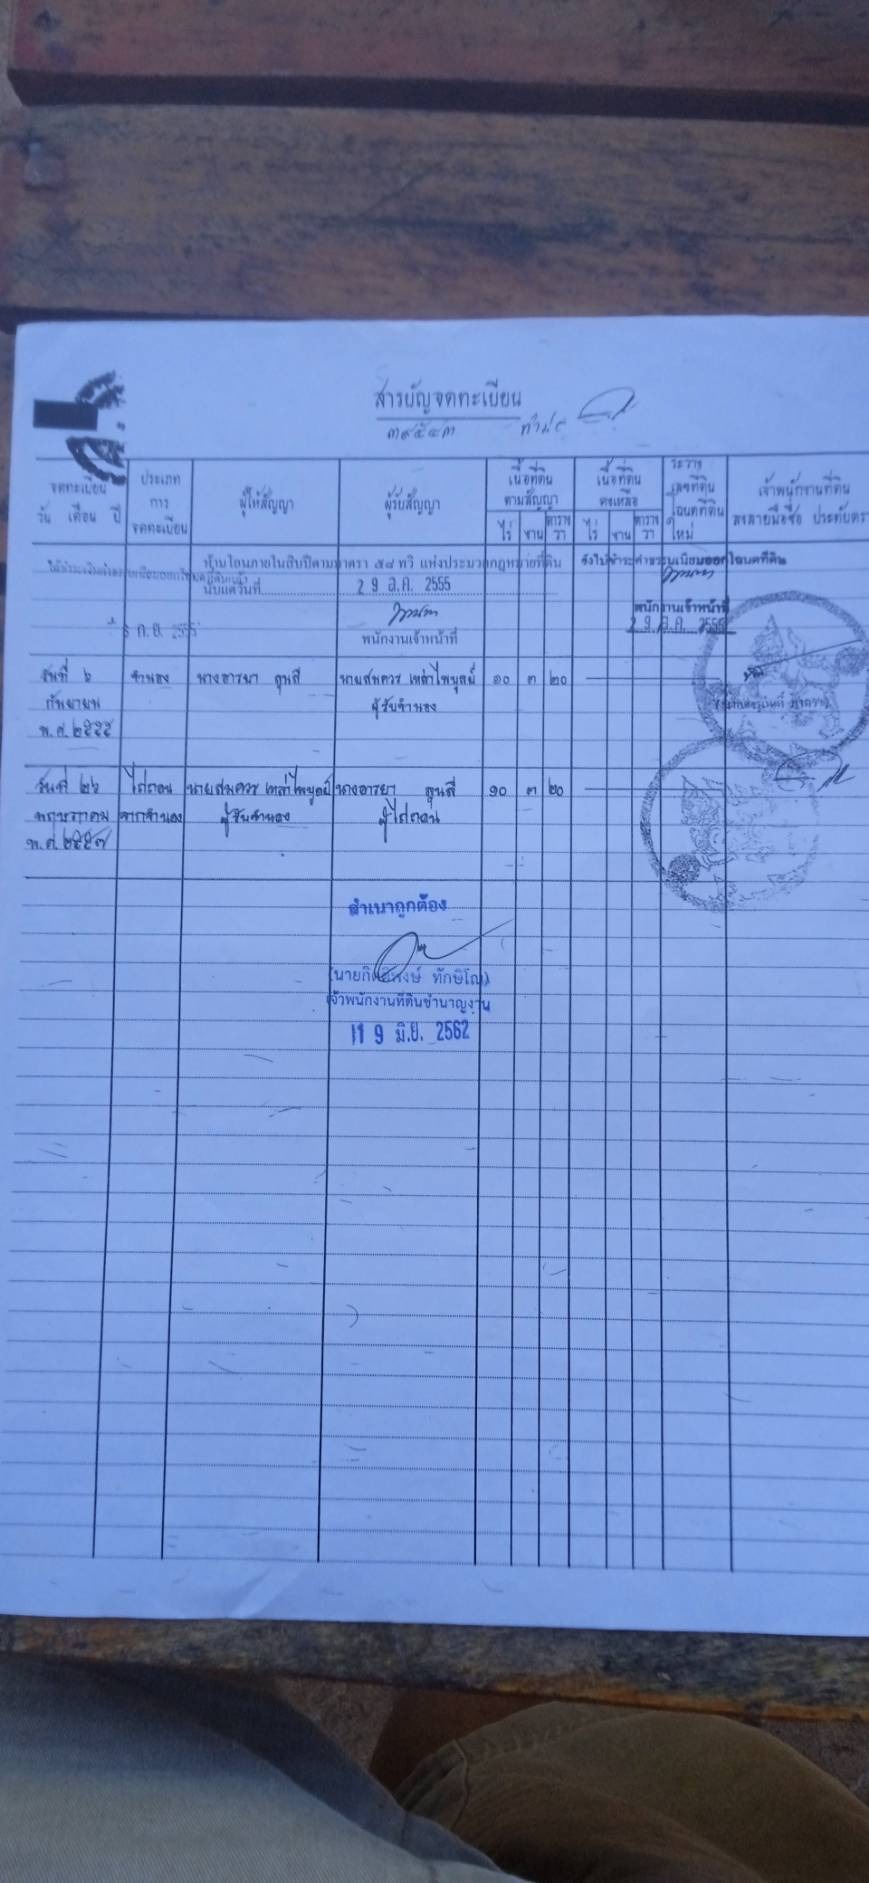 สารบัญจดทะเบียน
๓๙๕๔๓
จดทะเบียน
วัน เดือน ปี
ประเภท
การ
จดทะเบียน
ผู้ให้สัญญา
ผู้รับสัญญา
เนื้อที่ดิน
ตามสัญญา
ไร่ งาน ตาราง
วา
เนื้อที่ดิน
คงเหลือ
ไร่ งาน ตาราง
วา
ระวาง
เลขที่ดิน
โฉนดที่ดิน
ใหม่
เจ้าพนักงานที่ดิน
ลงลายมือชื่อ ประทับตรา
ห้ามโอนภายในสิบปีตามมาตรา ๕๘ ทวิ แห่งประมวลกฎหมายที่ดิน
นับแต่วันที่ 29 ส.ค. 2555
พนักงานเจ้าหน้าที่
ยังไม่ชำระค่าธรรมเนียมออกโฉนดที่ดิน
พนักงานเจ้าหน้าที่
29 ส.ค. 2555
ก.ย. 2555
วันที่ ๖ จำนอง นางอารยา นายสมควร เหล่าไพบูลย์ ๑๐ ๓ ๒๐
กันยายน ผู้รับจำนอง
พ.ศ. ๒๕๕๕
วันที่ ๒๖ ไถ่ถอน นายสมควร เหล่าไพบูลย์ นางอารยา ๑๐ ๓ ๒๐
พฤษภาคม จากจำนอง ผู้รับจำนอง ผู้ไถ่ถอน
พ.ศ. ๒๕๕๗
สำเนาถูกต้อง
เจ้าพนักงานที่ดินชำนาญงาน
19 มิ.ย. 2562